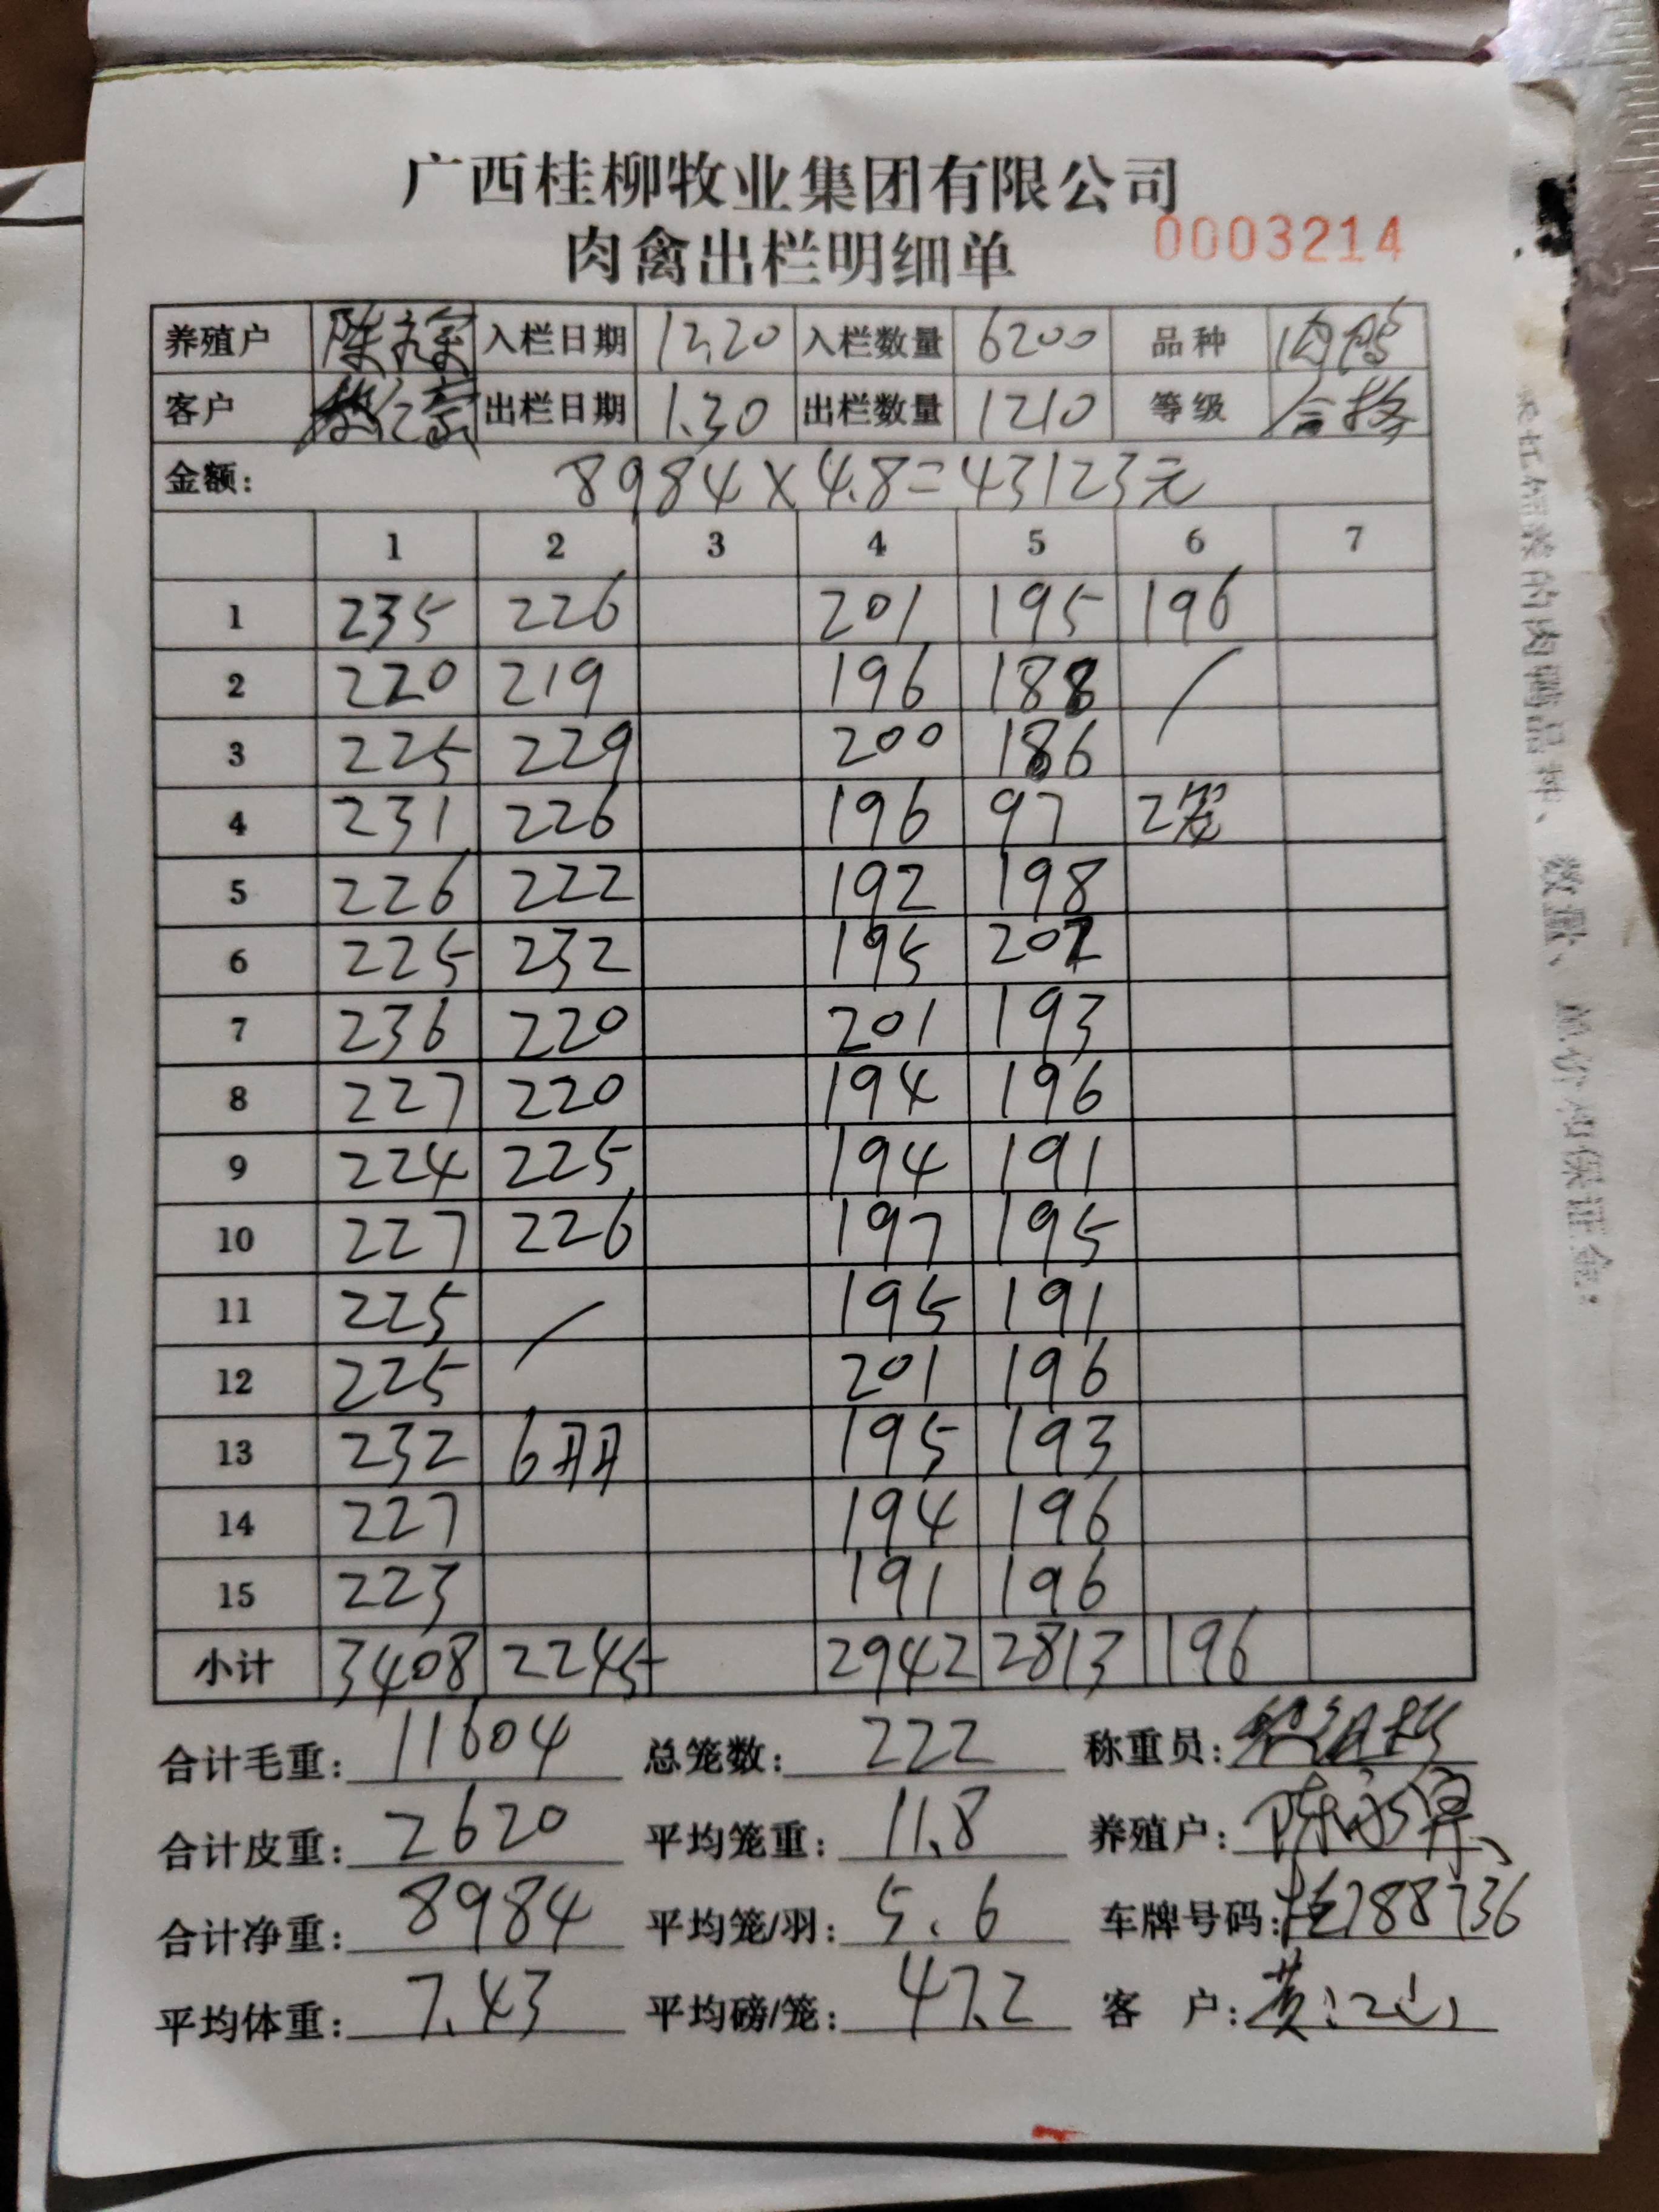 广西桂柳牧业集团有限公司
肉禽出栏明细单 0003214
养殖户 陈 入栏日期 12.20 入栏数量 6200 品种 肉鸭
客户 出栏日期 1.30 出栏数量 1210 等级 合格
金额: 8984×4.8=43123元
1 2 3 4 5 6 7
1 235 226 201 195 196
2 220 219 196 188 /
3 225 229 200 186
4 231 226 196 97 2笼
5 226 222 192 198
6 225 232 195 202
7 236 220 201 193
8 227 220 194 196
9 224 225 194 191
10 227 226 197 195
11 225 / 195 191
12 225 201 196
13 232 6 195 193
14 227 194 196
15 223 191 196
小计 3408 2245 2942 2813 196
合计毛重: 11604 总笼数: 222 称重员:
合计皮重: 2620 平均笼重: 11.8 养殖户: 陈
合计净重: 8984 平均笼/羽: 5.6 车牌号码: 788736
平均体重: 7.43 平均磅/笼: 47.2 客户: 黄
的肉鸭品种、数量、单价和保证金。